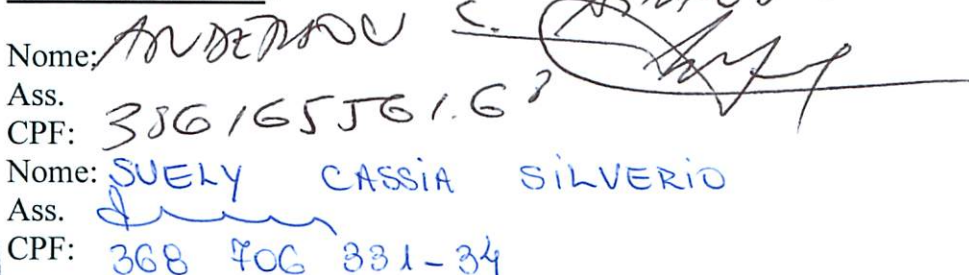 Nome: ANDERSON C.
Ass.
CPF:
Nome: SUELY CASSIA SILVERIO
Ass.
CPF: 368 706 331-34